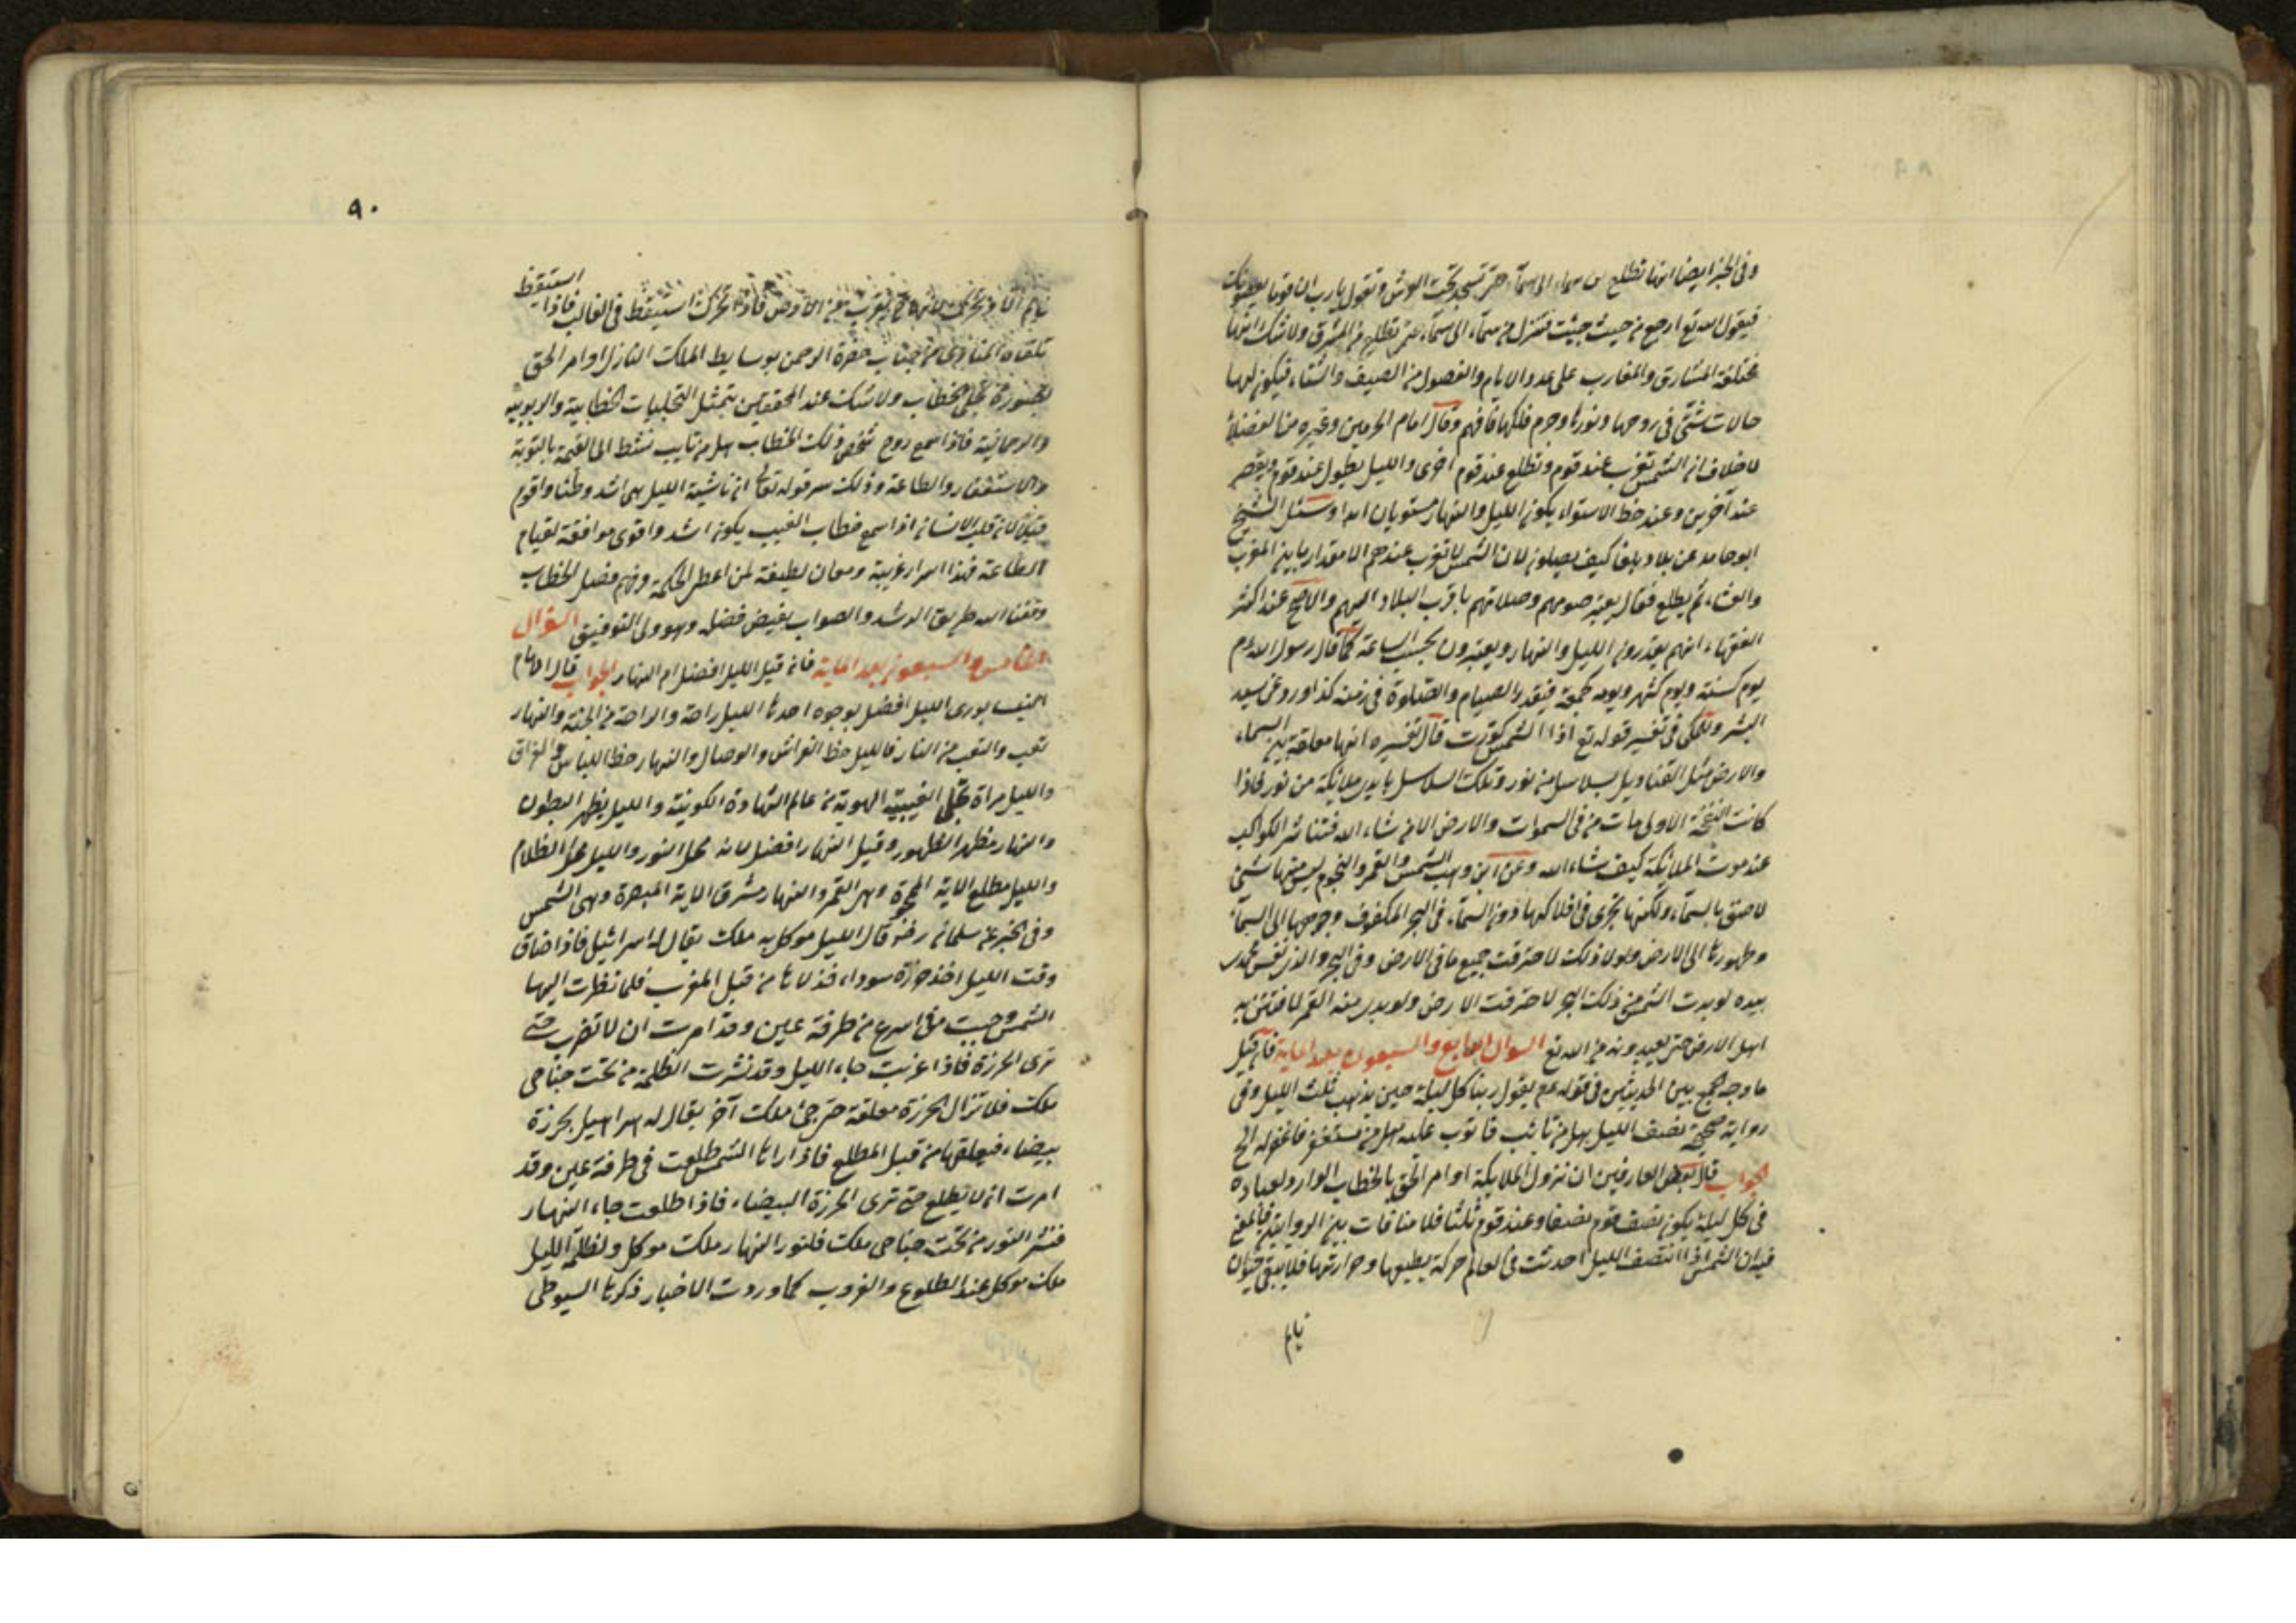 وفى الخبر ايضا انها تطلع من سماء الى سماء حتى تسجد تحت العرش وتقول يارب ان قوما يعصونك
فيقول الله تع ارجع من حيث جيئت فتنزل من سماء الى سماء حتى تطلع من المشرق ولا شك انها
مختلفة المشارق والمغارب على عدد الايام والفصول من الصيف والشتاء فيكون لها
حالات شتى فى روحها ونورها وجرم فلكها فافهم وقال امام الحرمين وغيره من الفضلاء
لا خلاف ان الشمس تغرب عند قوم وتطلع عند قوم اخرى والليل يطول عند قوم ويقصر
عند آخرين وعند خط الاستواء يكون الليل والنهار مستويان ابدا وسئل الشيخ
ابو حامد عن بلاد بلغا كيف يصلون لان الشمس لا تغرب عندهم الا مقدار ما بين المغرب
والعشاء ثم يطلع فقال يعتبر صومهم وصلاتهم باقرب البلاد اليهم والاصح عند اكثر
الفقهاء انهم يقدرون الليل والنهار ويعتبرون بحسب الساعة كما قال رسول الله عم
يوم كسنة ويوم كشهر ويوم كجمعة فيقدر الصيام والصلوة فى زمنه كذا ورد عن سيد
البشر وللمكى فى تفسير قوله تع اذا الشمس كورت قال تفسيره انها معلقة بين السماء
والارض مثل القناديل بسلاسل من نور وتلك السلاسل بايدى ملائكة من نور فاذا
كانت النفخة الاولى مات من فى السموات والارض الا من شاء الله فتناثر الكواكب
عند موت الملائكة كيف شاء الله وعن ابن وهب الشمس والقمر والنجوم ليس منها شئ
لاصق بالسماء ولكنها تجرى فى افلاكها دون السماء فى البحر المكفوف وجوهها الى السماء
وظهورها الى الارض ولولا ذلك لاحترقت جميع ما فى الارض وفى البحر والذى نفس محمد
بيده لو بدت الشمس من ذلك البحر لاحترقت الارض ولو بدى منه القمر لافتتن به
اهل الارض حتى يعبدونه من الله تع السؤال الرابع والسبعون بعد الماية فان قيل
ما وجه الجمع بين الحديثين فى قوله عم يقول ربنا كل ليلة حين يذهب ثلث الليل وفى
رواية صحيحة نصف الليل هل من تائب فاتوب عليه هل من مستغفر فاغفر له الخ
الجواب قال بعض العارفين ان نزول الملايكة اوامر الحق بالخطاب الوارد لعباده
فى كل ليلة يكون نصف قوم نصفا وعند قوم ثلثا فلا منافات بين الروايتين فالمعنى
فيه ان الشمس اذا انتصف الليل احدثت فى العالم حركة بطبعها وحرارتها فلا يبقى حيوان
نايم
٩٠
استيقظ
نايم الا ويتحرك لانها تقرب من الارض فاذا تحرك استيقظ فى الغالب فاذا
تلقاه المنادى من جناب حضرة الرحمن بوسايط الملك النازل اوامر الحق
بصورة تجلى الخطاب ولا شك عند المحققين بتمثل التجليات الخطابية والربوبية
والرحمانية فاذا سمع روح شخص ذلك الخطاب هل من تايب نشط الى القيمة بالتوبة
والاستغفار والطاعة وذلك سر قوله تعالى ان ناشئة الليل هى اشد وطئا واقوم
قيلا لان قلب الانسان اذا سمع خطاب الغيب يكون اشد واقوى موافقة لقيام
الطاعة فهذا اسرار غريبة ومعان لطيفة لمن اعطى الحكمة وفهم فصل الخطاب
وفقنا الله طريق الرشد والصواب بفيض فضله وهو ولى التوفيق السؤال
الخامس والسبعون بعد الماية فان قيل الليل افضل ام النهار الجواب قال الامام
النيسابورى الليل افضل بوجوه احدها الليل راحة والراحة من الجنة والنهار
تعب والتعب من النار فالليل حظ الفراش والوصال والنهار حظ اللباس والفراق
والليل مرآة تجلى الغيبية الهوية من عالم الشهادة الكونية والليل يظهر البطون
والنهار مظهر الظهور وقيل النهار افضل لانه محل النور والليل محل الظلام
والليل مطلع الاية الممحوة وهى القمر والنهار مشرق الاية المبصرة وهى الشمس
وفى الخبر عن سلمان رضه قال الليل موكل به ملك يقال له اسرائيل فاذا ضاق
وقت الليل اخذ خرزة سوداء فدلاها من قبل المغرب فلما نظرت اليها
الشمس وجبت فى اسرع من طرفة عين وقد امرت ان لا تغرب حتى
ترى الخرزة فاذا غربت جاء الليل وقد نشرت الظلمة من تحت جناحى
ملك فلا تزال الخرزة معلقة حتى جئ ملك آخر يقال له هراهيل بخرزة
بيضاء فيعلقها من قبل المطلع فاذا راها الشمس طلعت فى طرفة عين وقد
امرت ان لا يطلع حتى ترى الخرزة البيضاء فاذا طلعت جاء النهار
فنشر النور من تحت جناحى ملك فلنور النهار ملك موكل ولظلمة الليل
ملك موكل عند الطلوع والغروب كما وردت الاخبار ذكرها السيوطى